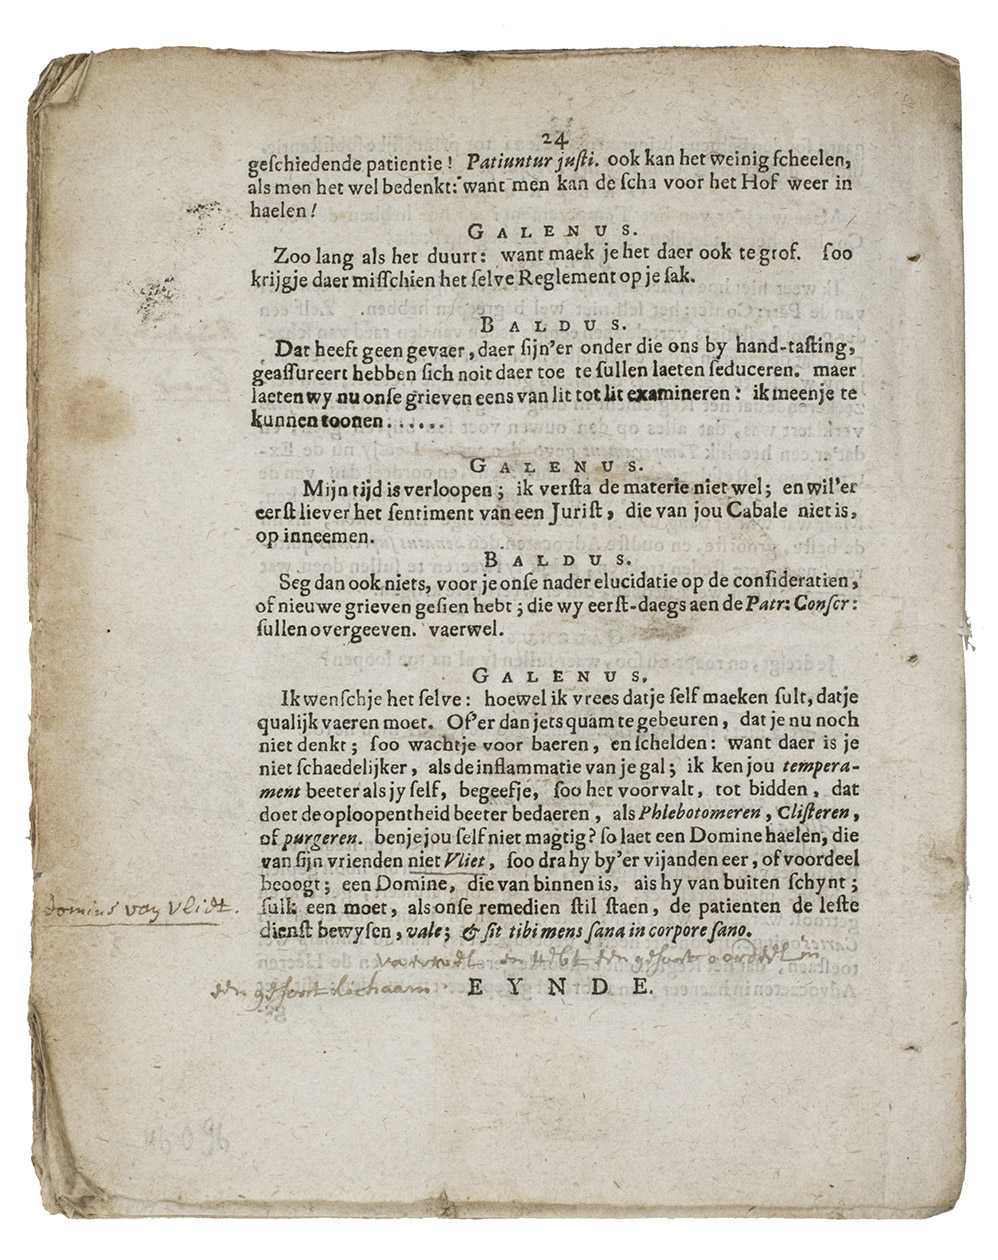 24
geſchiedende patientie! Patiuntur juſti. ook kan het weinig ſcheelen,
als men het wel bedenkt: want men kan de ſcha voor het Hof weer in
haelen!
GALENUS.
Zoo lang als het duurt: want maek je het daer ook te grof. ſoo
krijgje daer miſſchien het ſelve Reglement op je ſak.
BALDUS.
Dat heeft geen gevaer, daer ſijn'er onder die ons by hand-taſting,
geaſſureert hebben ſich noit daer toe te ſullen laeten ſeduceren. maer
laeten wy nu onſe grieven eens van lit tot lit examineren: ik meen je te
kunnen toonen......
GALENUS.
Mijn tijd is verloopen; ik verſta de materie niet wel; en wil'er
eerſt liever het ſentiment van een Juriſt, die van jou Cabale niet is,
op inneemen.
BALDUS.
Seg dan ook niets, voor je onſe nader elucidatie op de conſideratien,
of nieuwe grieven geſien hebt; die wy eerſt-daegs aen de Patr: Conſcr:
ſullen overgeeven. vaerwel.
GALENUS.
Ik wenſchje het ſelve: hoewel ik vrees datje ſelf maeken ſult, datje
qualijk vaeren moet. Of'er dan jets quam te gebeuren, dat je nu noch
niet denkt; ſoo wachtje voor baeren, en ſchelden: want daer is je
niet ſchaedelijker, als de inflammatie van je gal; ik ken jou tempera-
ment beeter als jy ſelf, begeefje, ſoo het voorvalt, tot bidden, dat
doet de oploopentheid beeter bedaeren, als Phlebotomeren, Cliſteren,
of purgeren. ben je jou ſelf niet magtig? ſo laet een Domine haelen, die
van ſijn vrienden niet Vliet, ſoo dra hy by'er vijanden eer, of voordeel
beoogt; een Domine, die van binnen is, als hy van buiten ſchynt;
domine van Vlidt. ſulk een moet, als onſe remedien ſtil ſtaen, de patienten de leſte
dienſt bewyſen, vale; & ſit tibi mens ſana in corpore ſano.
vaerwel en hebt een geſont oordeel en
een geſont lichaam.
EYNDE.